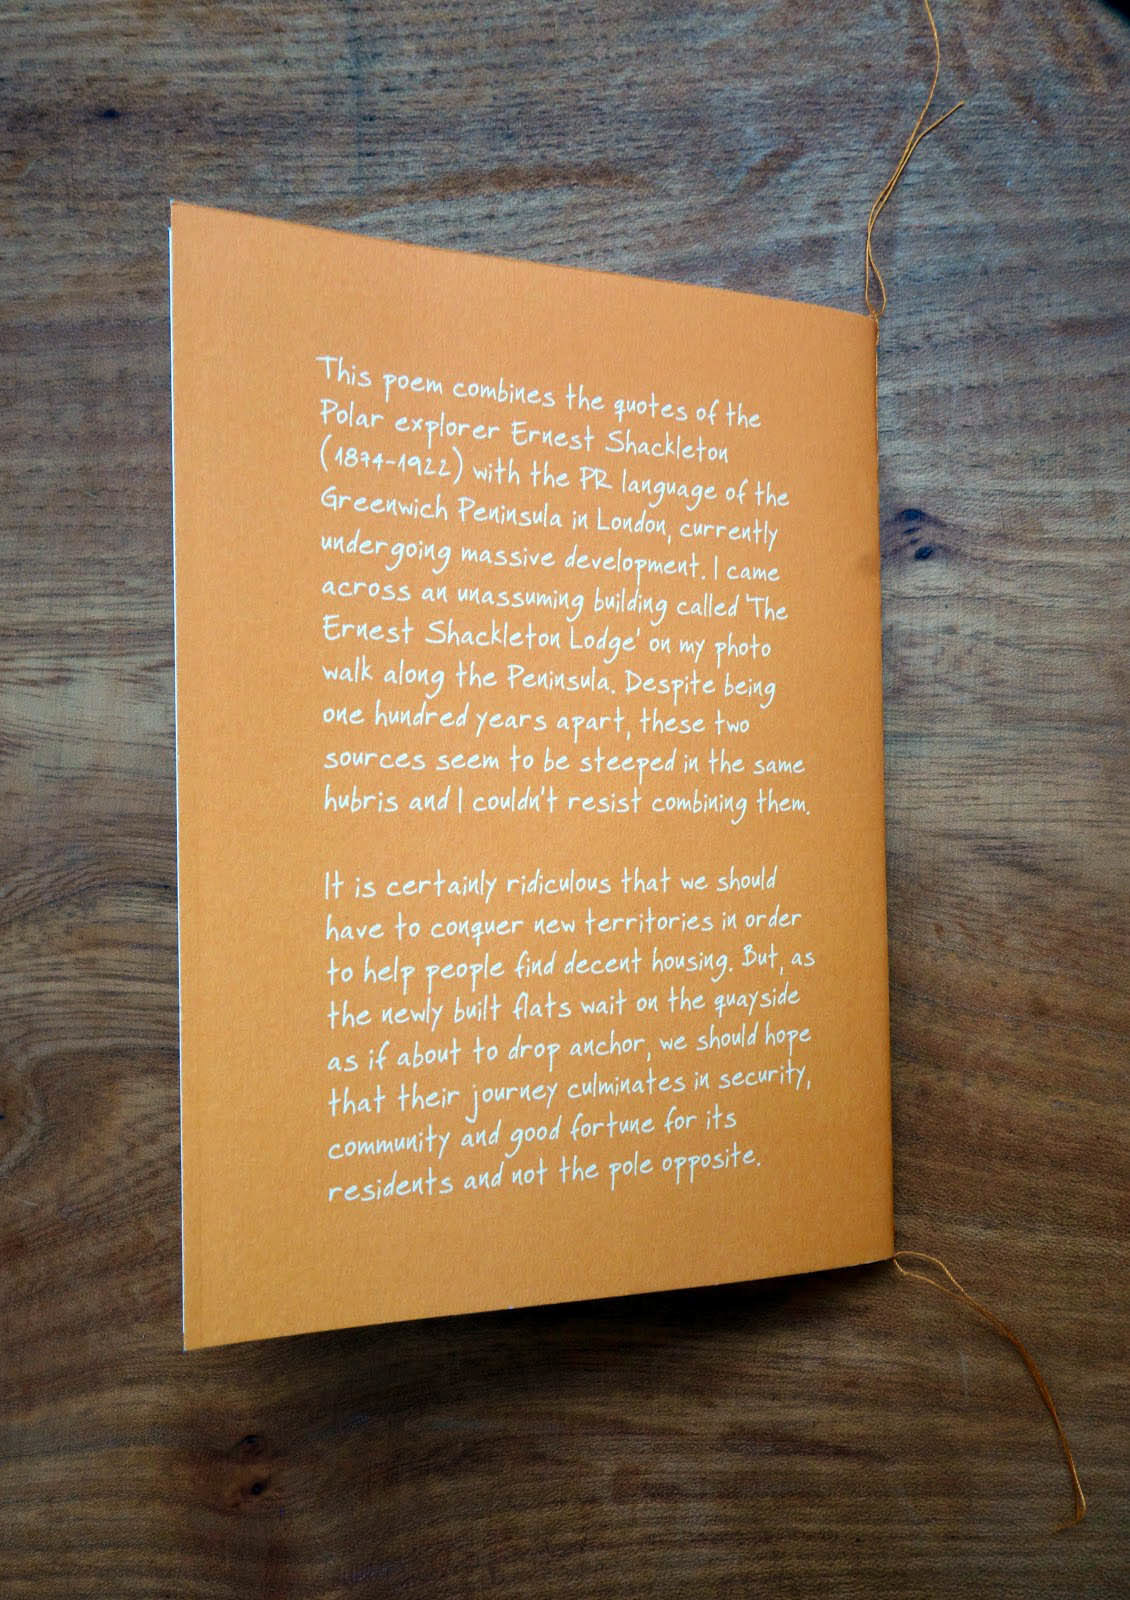 This poem combines the quotes of the
Polar explorer Ernest Shackleton
(1874-1922) with the PR language of the
Greenwich Peninsula in London, currently
undergoing massive development. I came
across an unassuming building called 'The
Ernest Shackleton Lodge' on my photo
walk along the Peninsula. Despite being
one hundred years apart, these two
sources seem to be steeped in the same
hubris and I couldn't resist combining them.
It is certainly ridiculous that we should
have to conquer new territories in order
to help people find decent housing. But, as
the newly built flats wait on the quayside
as if about to drop anchor, we should hope
that their journey culminates in security,
community and good fortune for its
residents and not the pole opposite.